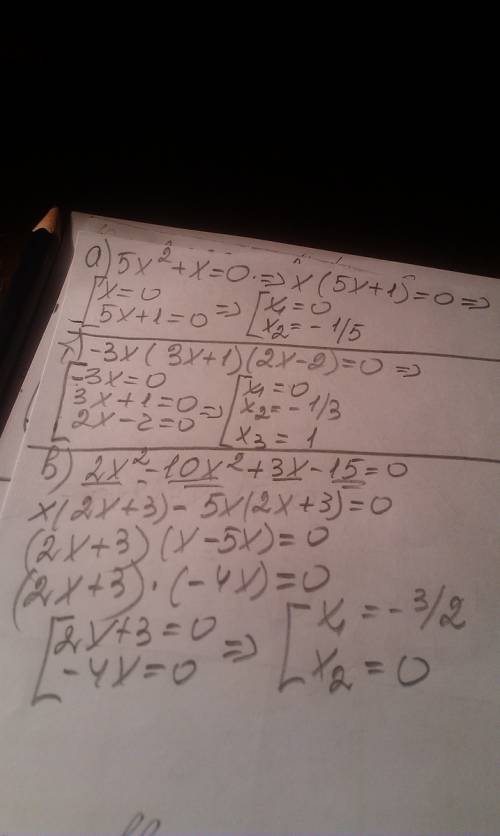 а) 5x² + x = 0. => x (5x+1) = 0 =>
[x = 0
5x+1 = 0 => [x₁ = 0
x₂ = - 1/5
-3x( 3x+1)(2x-2) = 0 =>
[-3x = 0
3x+1 = 0 => [x₁ = 0
2x-2 = 0
x₂ = - 1/3
x₃ = 1
в) 2x² - 10x² + 3x - 15 = 0
x(2x+3) - 5x(2x+3) = 0
(2x+3) (x-5x) = 0
(2x+3) · (-4x) = 0
[2x+3 = 0
-4x = 0 => [x₁ = - 3/2
x₂ = 0